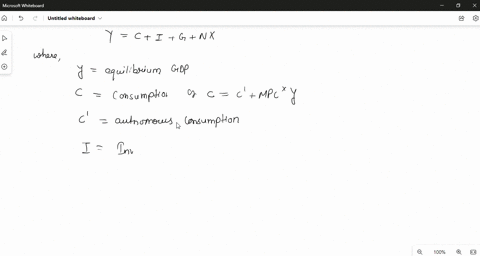 Microsoft Whiteboard
Untitled whiteboard
Y = C + I + G + NX
where,
Y = equilibrium GDP
C = Consumption or C = C' + MPC × Y
C' = autonomous consumption
I = Inv
100%